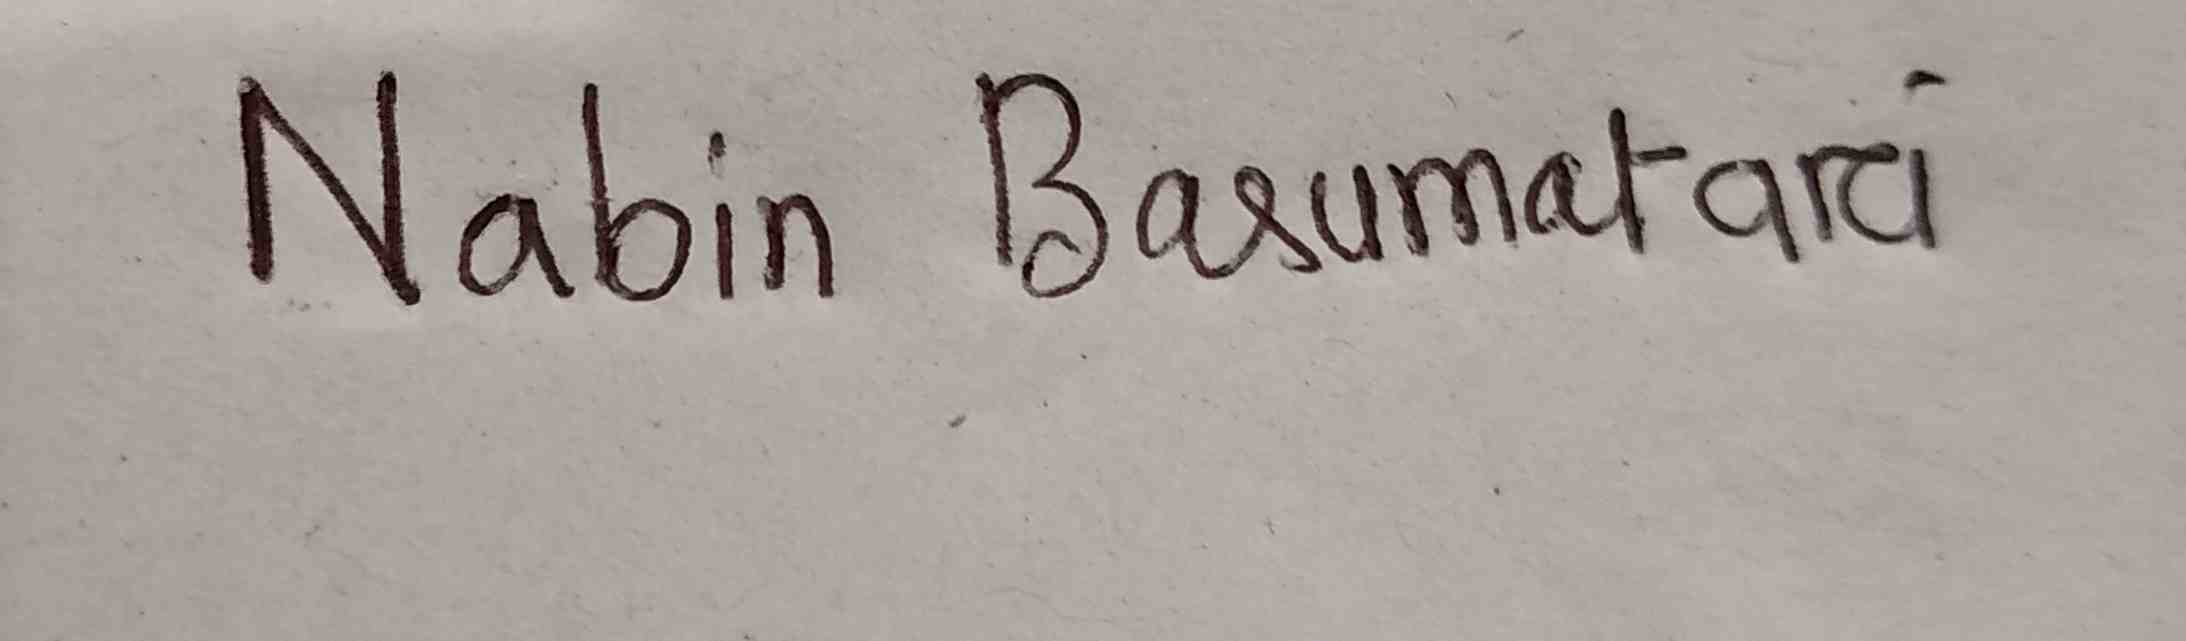 Nabin Basumatari